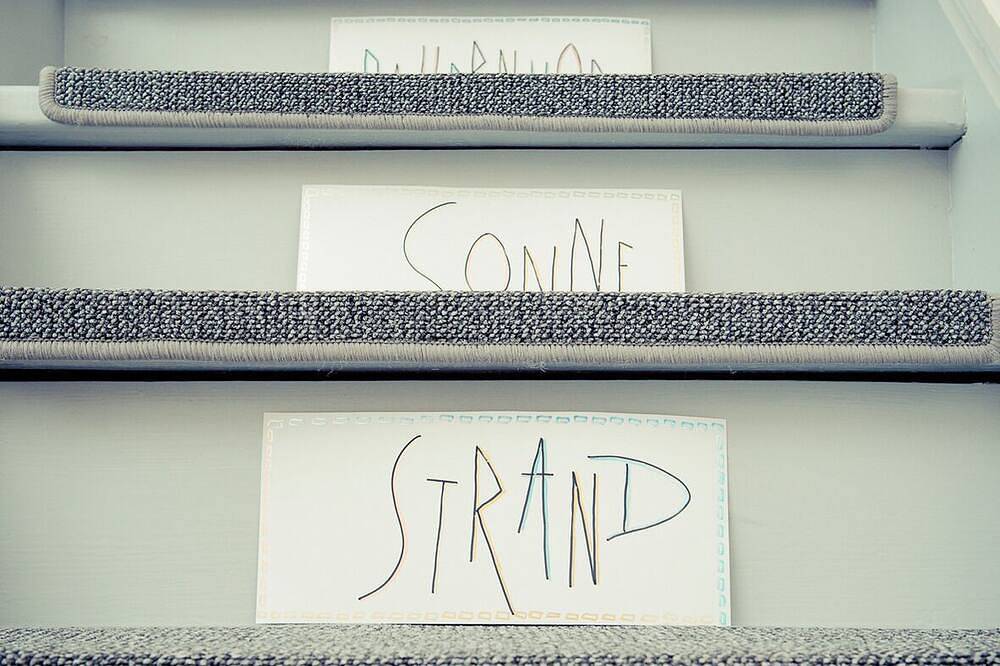 SONNE
STRAND